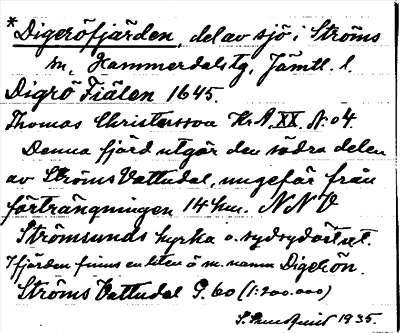 *Digeröfjärden, del av sjö i Ströms
sn, Hammerdals tg, Jämtl. l.
Digrö Fiälen 1645.
Thomas Christersson K.A. XX. N:o 4.
Denna fjärd utgör den södra delen
av Ströms Vattudal, ungefär från
förträngningen 14 km. NNV
Strömsunds kyrka o. sydsydöstut.
I fjärden finns en liten ö m. namn Digerön.
Ströms Vattudal G. 60 (1:200.000)
1935.